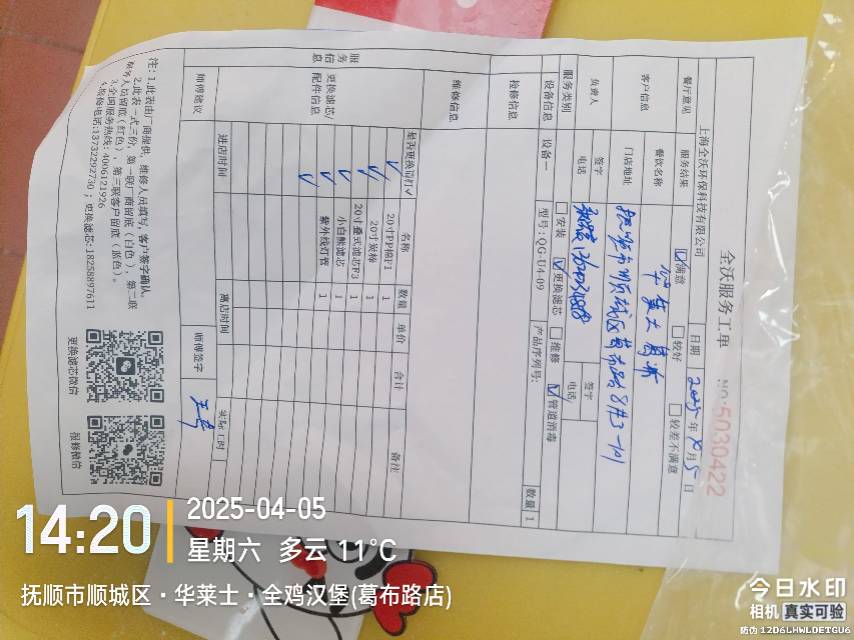 全沃服务工单 NO:5030422
上海全沃环保科技有限公司 日期 2025年4月5日
餐厅意见 服务结果 ☑满意 □较好 □较差不满意
客户信息 餐饮名称 华莱士葛布
门店地址 抚顺市顺城区葛布路8#3-1门
负责人 签字 电话 签字 电话
服务类别 □安装 ☑更换滤芯 □维修 ☑管道消毒
设备信息 设备一 型号:QG-U4-09 产品序列号: 数量 1
检修信息
维修信息
服务信息
更换滤芯/配件信息 是否更换请打✓ 名称 数量 单价 合计 备注
✓ 20寸PP棉F1 1
✓ 20寸炭棒 1
✓ 20寸叠式滤芯F3 1
✓ 小白熊滤芯 1
✓ 紫外线灯管 1
进店时间 离店时间 实际工时
师傅建议 师傅签字
注:1.此表由厂商提供,维修人员填写,客户签字确认。
2.此表一式三份,第一联厂商留底(白色),第二联
服务人员留底(红色),第三联客户留底(蓝色)。
3.全国服务热线:4006121926
4.报修电话:13732292730;更换滤芯:18258897611
更换滤芯微信 报修微信
14:20
2025-04-05
星期六 多云 11°C
抚顺市顺城区·华莱士·全鸡汉堡(葛布路店)
今日水印
相机 真实可验
防伪 12D6LHWLDETGU6